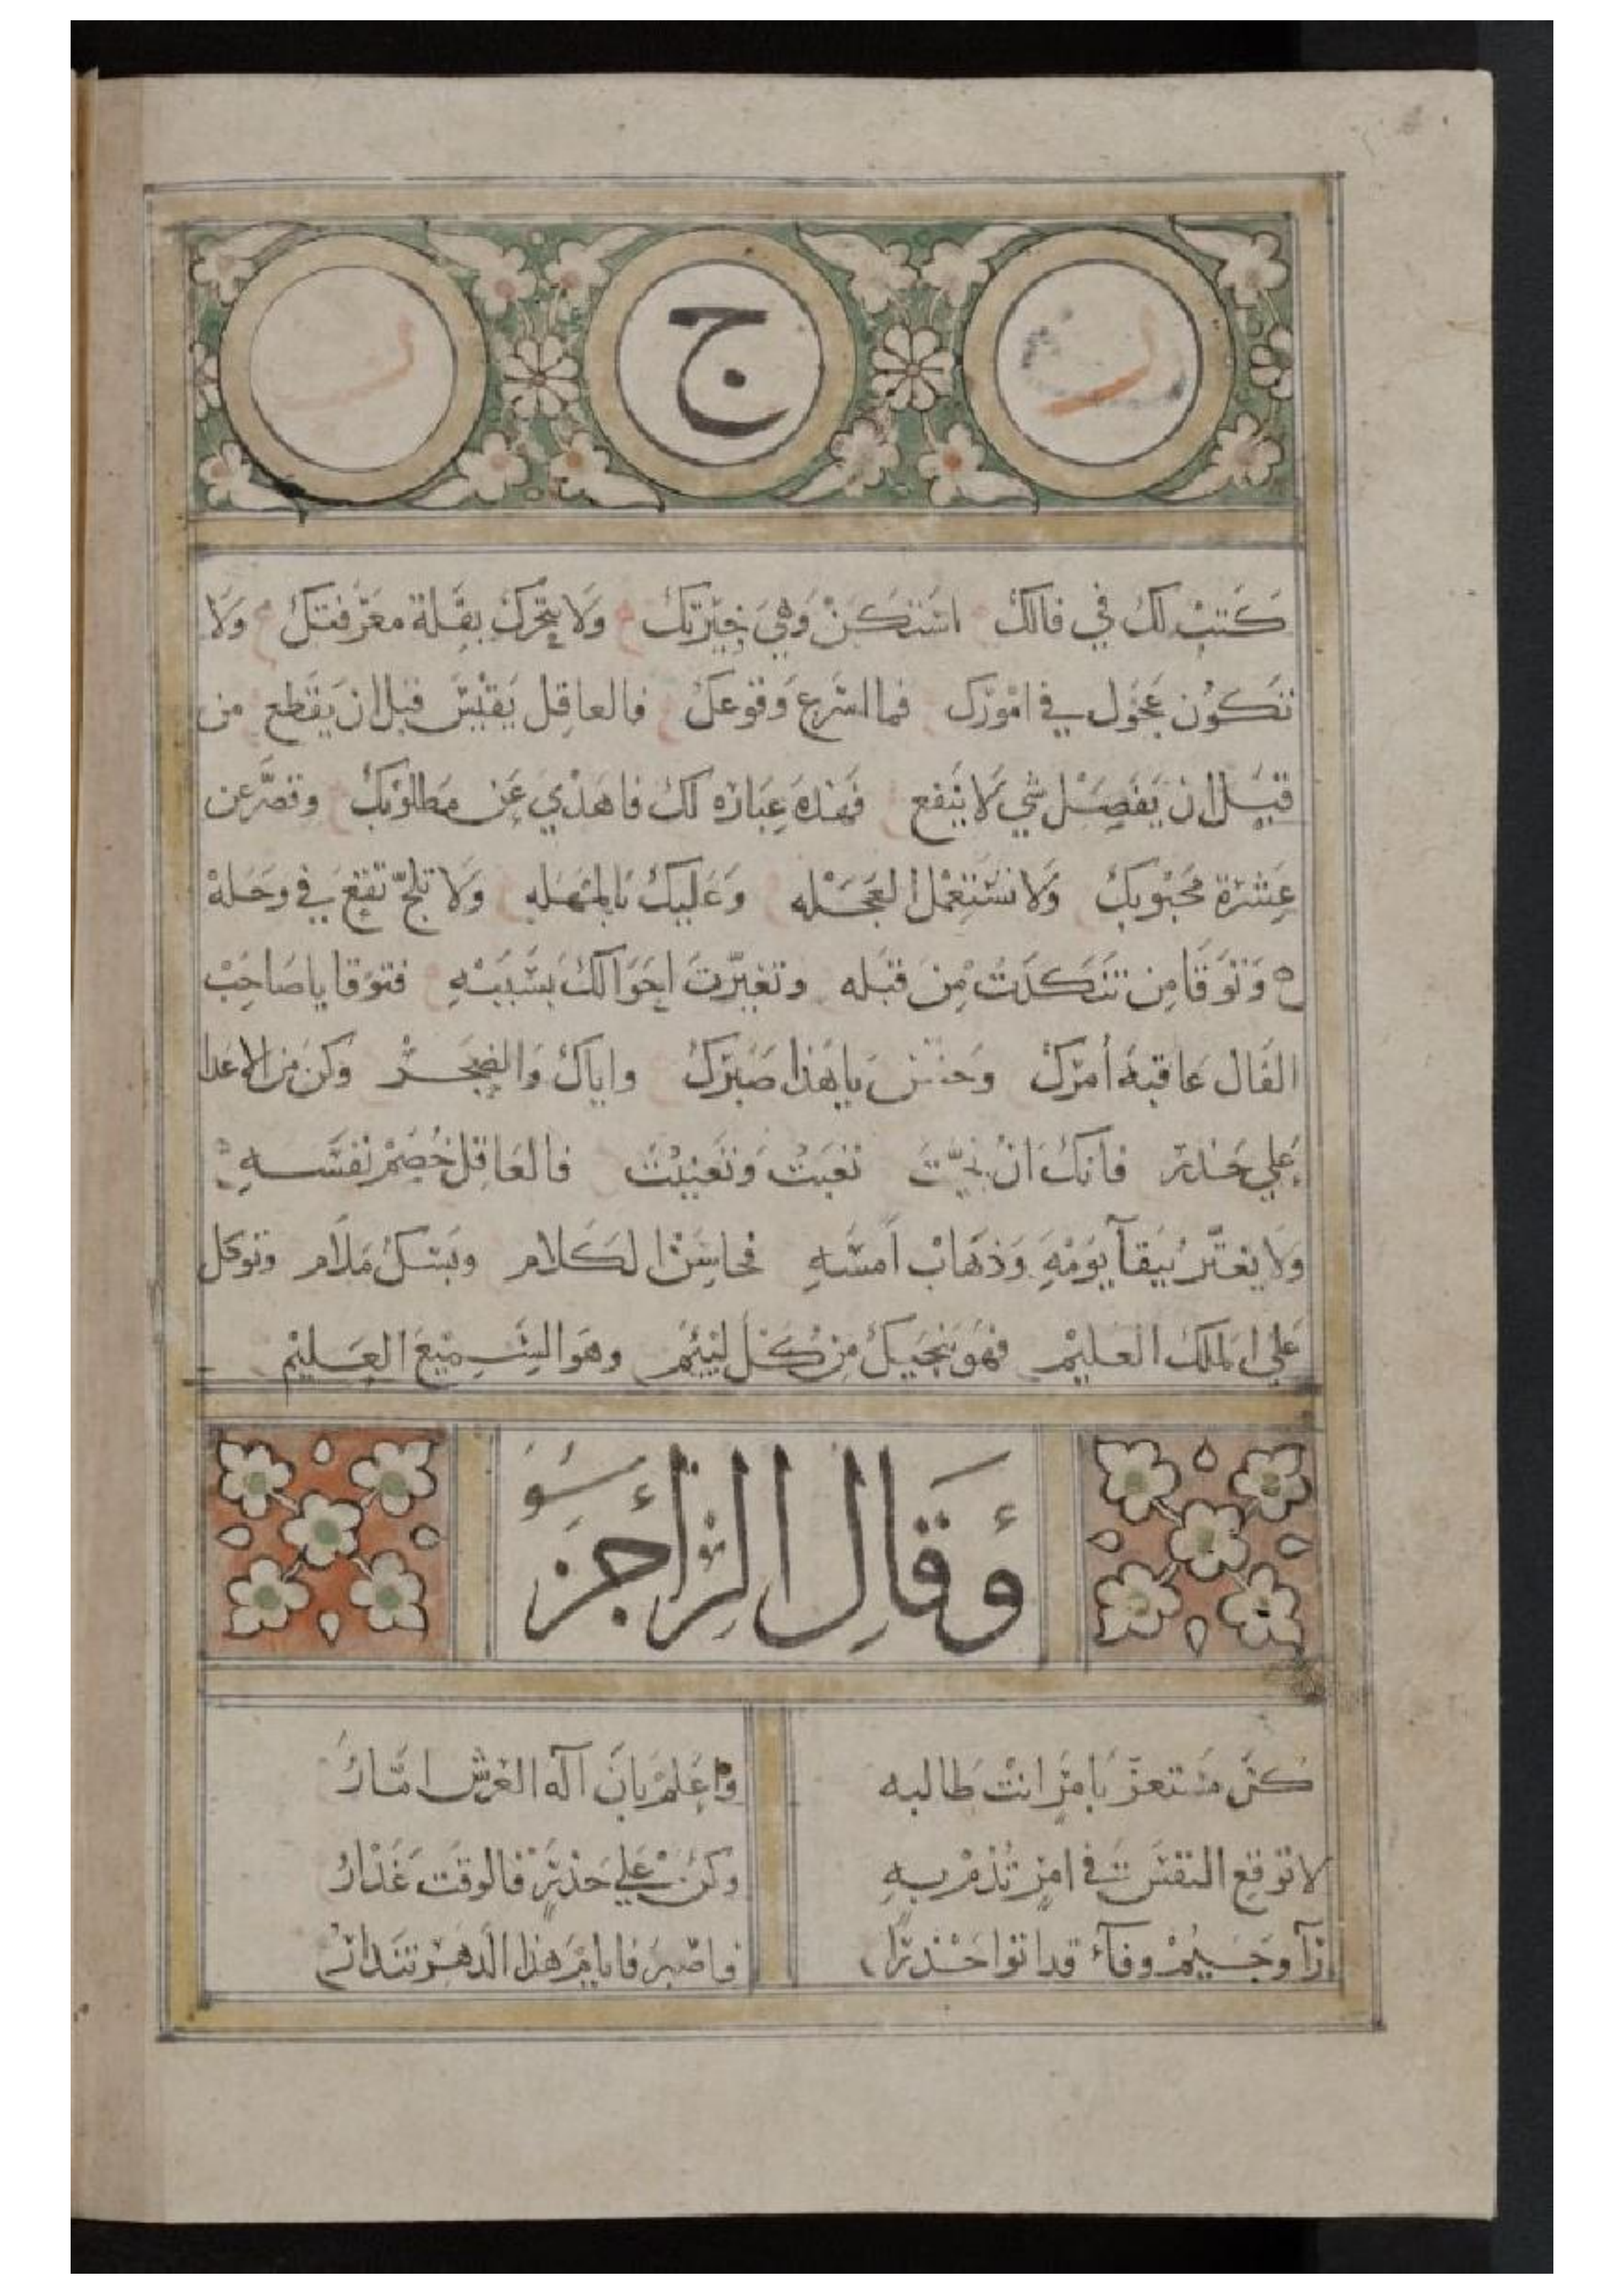 ر ج ر
كتبت لك في فالك استكن وهي خيرتك ولا يتحرك بقلة معرفتك ولا
تكون عجول في امورك فما اسرع وقوعك فالعاقل يقيس قبل ان يقطع من
قبل ان يفصل شي لا ينفع فهذه عباره لك فاهدي عن مطلوبك وتصر عن
عشرة محبوبك ولا تستعمل العجله وعليك بالمهله ولا تلج تقع في وحله
وتوقا من تنكدت من قبله وتغيرت احوالك بسببه فتوقا يا صاحب
الفال عاقبة أمرك و يا هذا صبرك واياك والضجر وكن من الاعدا
علي حذر فانك ان تعبت وتعنيت فالعاقل خصم نفسه
ولا يغتر ببقآ يومه وذهاب أمسه فحاسن الكلام ملام وتوكل
علي الملك العليم فهو ينجيك من كل ليئم وهو السميع العليم
وقال الراجز
كن مستعز بامر انت طالبه واعلم بان آله العرش امار
لا توقع النفس في امر تذم به وكن علي حذر فالوقت غدار
وفآء قد اتوا حذرا فاصبر فايام هذا الدهر